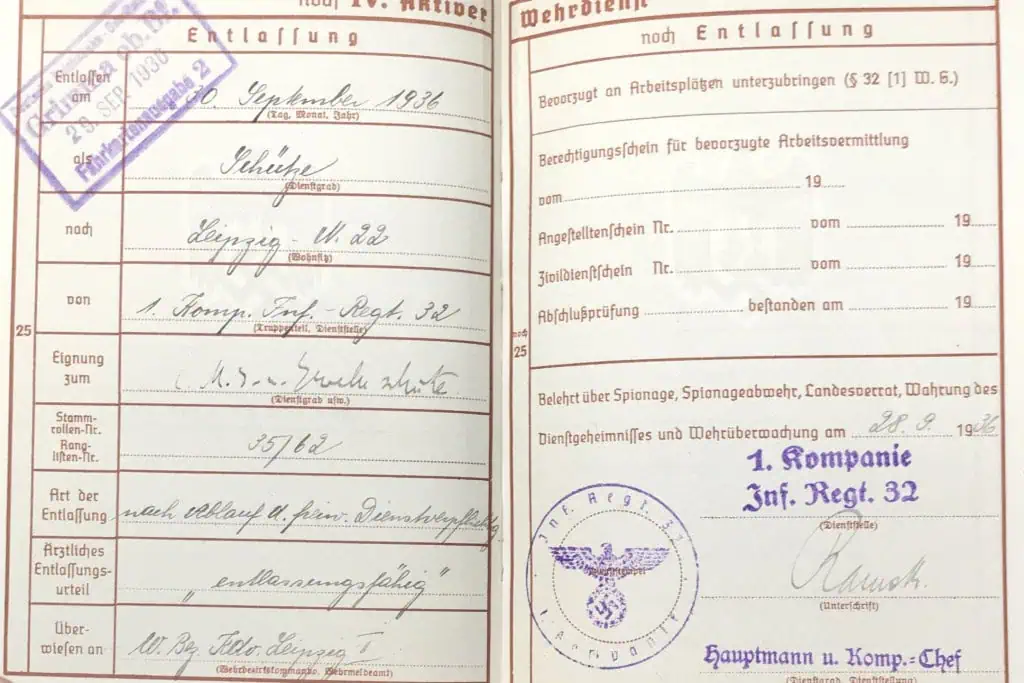 noch IV. Aktiver
Entlassung
Grimma ob. Bf.
29. SEP. 1936
Fahrkartenausgabe 2
Entlassen
am
30. September 1936
(Tag, Monat, Jahr)
als
Schütze
(Dienstgrad)
nach
Leipzig - N. 22
(Wohnsitz)
von
1. Komp. Inf.-Regt. 32
(Truppenteil, Dienststelle)
25
Eignung
zum
(Dienstgrad usw.)
Stamm-
rollen-Nr.
Rang-
listen-Nr.
35/62
Art der
Entlassung
nach Ablauf d. freiw. Dienstverpflichtg.
Ärztliches
Entlassungs-
urteil
„entlassungsfähig"
Über-
wiesen an
W. Bez. Kdo. Leipzig I
(Wehrbezirkskommando, Wehrmeldeamt)
Wehrdienst
noch Entlassung
Bevorzugt an Arbeitsplätzen unterzubringen (§ 32 [1] W. G.)
Berechtigungsschein für bevorzugte Arbeitsvermittlung
vom 19
Angestelltenschein Nr. vom 19
Zivildienstschein Nr. vom 19
Abschlußprüfung bestanden am 19
noch
25
Belehrt über Spionage, Spionageabwehr, Landesverrat, Wahrung des
Dienstgeheimnisses und Wehrüberwachung am 28. 9. 1936
1. Kompanie
Inf. Regt. 32
(Dienststelle)
Inf. Regt. 32
(Unterschrift)
Hauptmann u. Komp.-Chef
(Dienstgrad, Dienststellung)